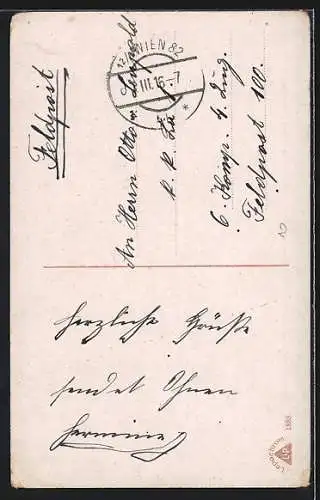 Feldpost
WIEN 82
III.16-7
An Herrn Otto v.
k. k.
6 Komp. 4. Zug.
Feldpost 110.
herzliche Grüße
sendet Ihnen
Hermine
1388